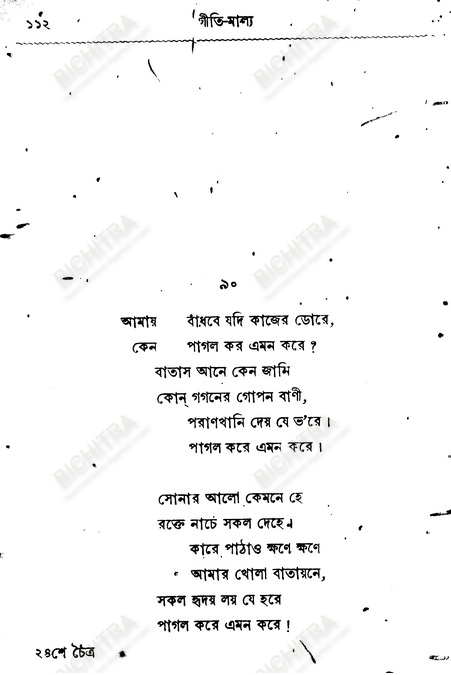 ১১২ গীতি-মাল্য
৯০
আমায় বাঁধবে যদি কাজের ডোরে,
কেন পাগল কর এমন করে ?
বাতাস আনে কেন জানি
কোন্ গগনের গোপন বাণী,
পরাণখানি দেয় যে ভ'রে ।
পাগল করে এমন করে ।
সোনার আলো কেমনে হে
রক্তে নাচে সকল দেহে ।
কারে পাঠাও ক্ষণে ক্ষণে
আমার খোলা বাতায়নে,
সকল হৃদয় লয় যে হরে
পাগল করে এমন করে !
২৪শে চৈত্র
BICHITRA
BICHITRA
BICHITRA
BICHITRA
BICHITRA
BICHITRA
BICHITRA
BICHITRA